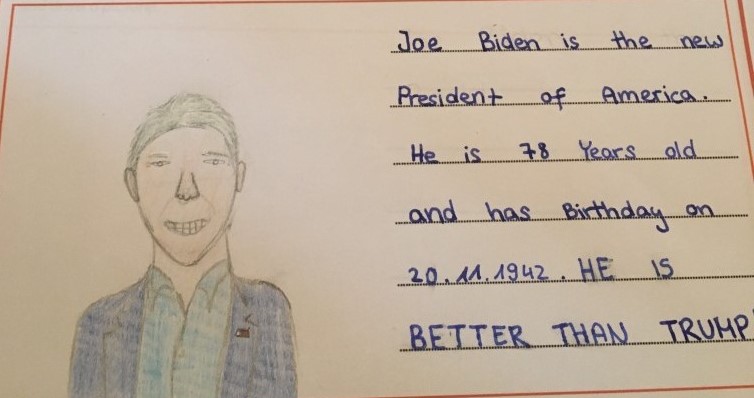 Joe Biden is the new
President of America.
He is 78 Years old
and has Birthday on
20.11.1942. HE IS
BETTER THAN TRUMP